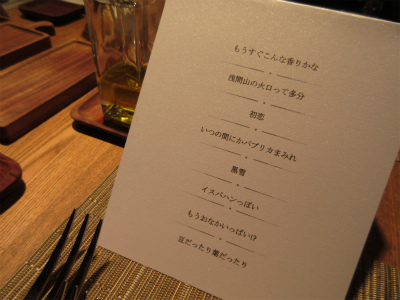 もうすぐこんな香りかな
浅間山の火口って多分
初恋
いつの間にかパプリカまみれ
黒雪
イスパハンっぽい
もうおなかいっぱい!?
豆だったり葉だったり